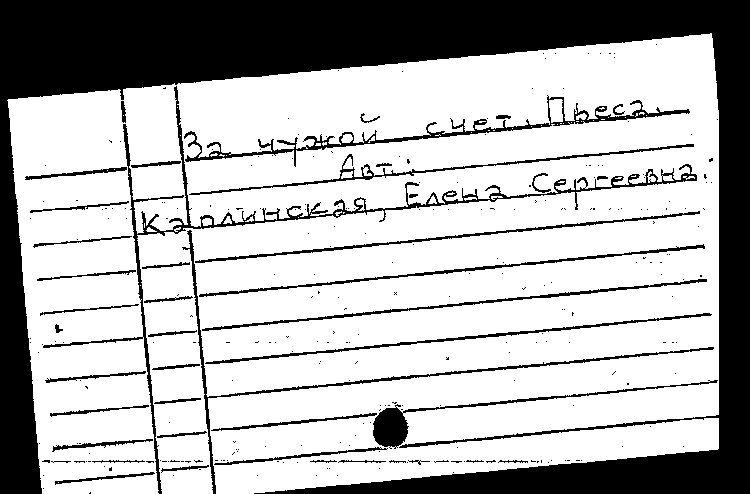 За чужой счет. Пьеса.
Авт.:
Каплинская, Елена Сергеевна.